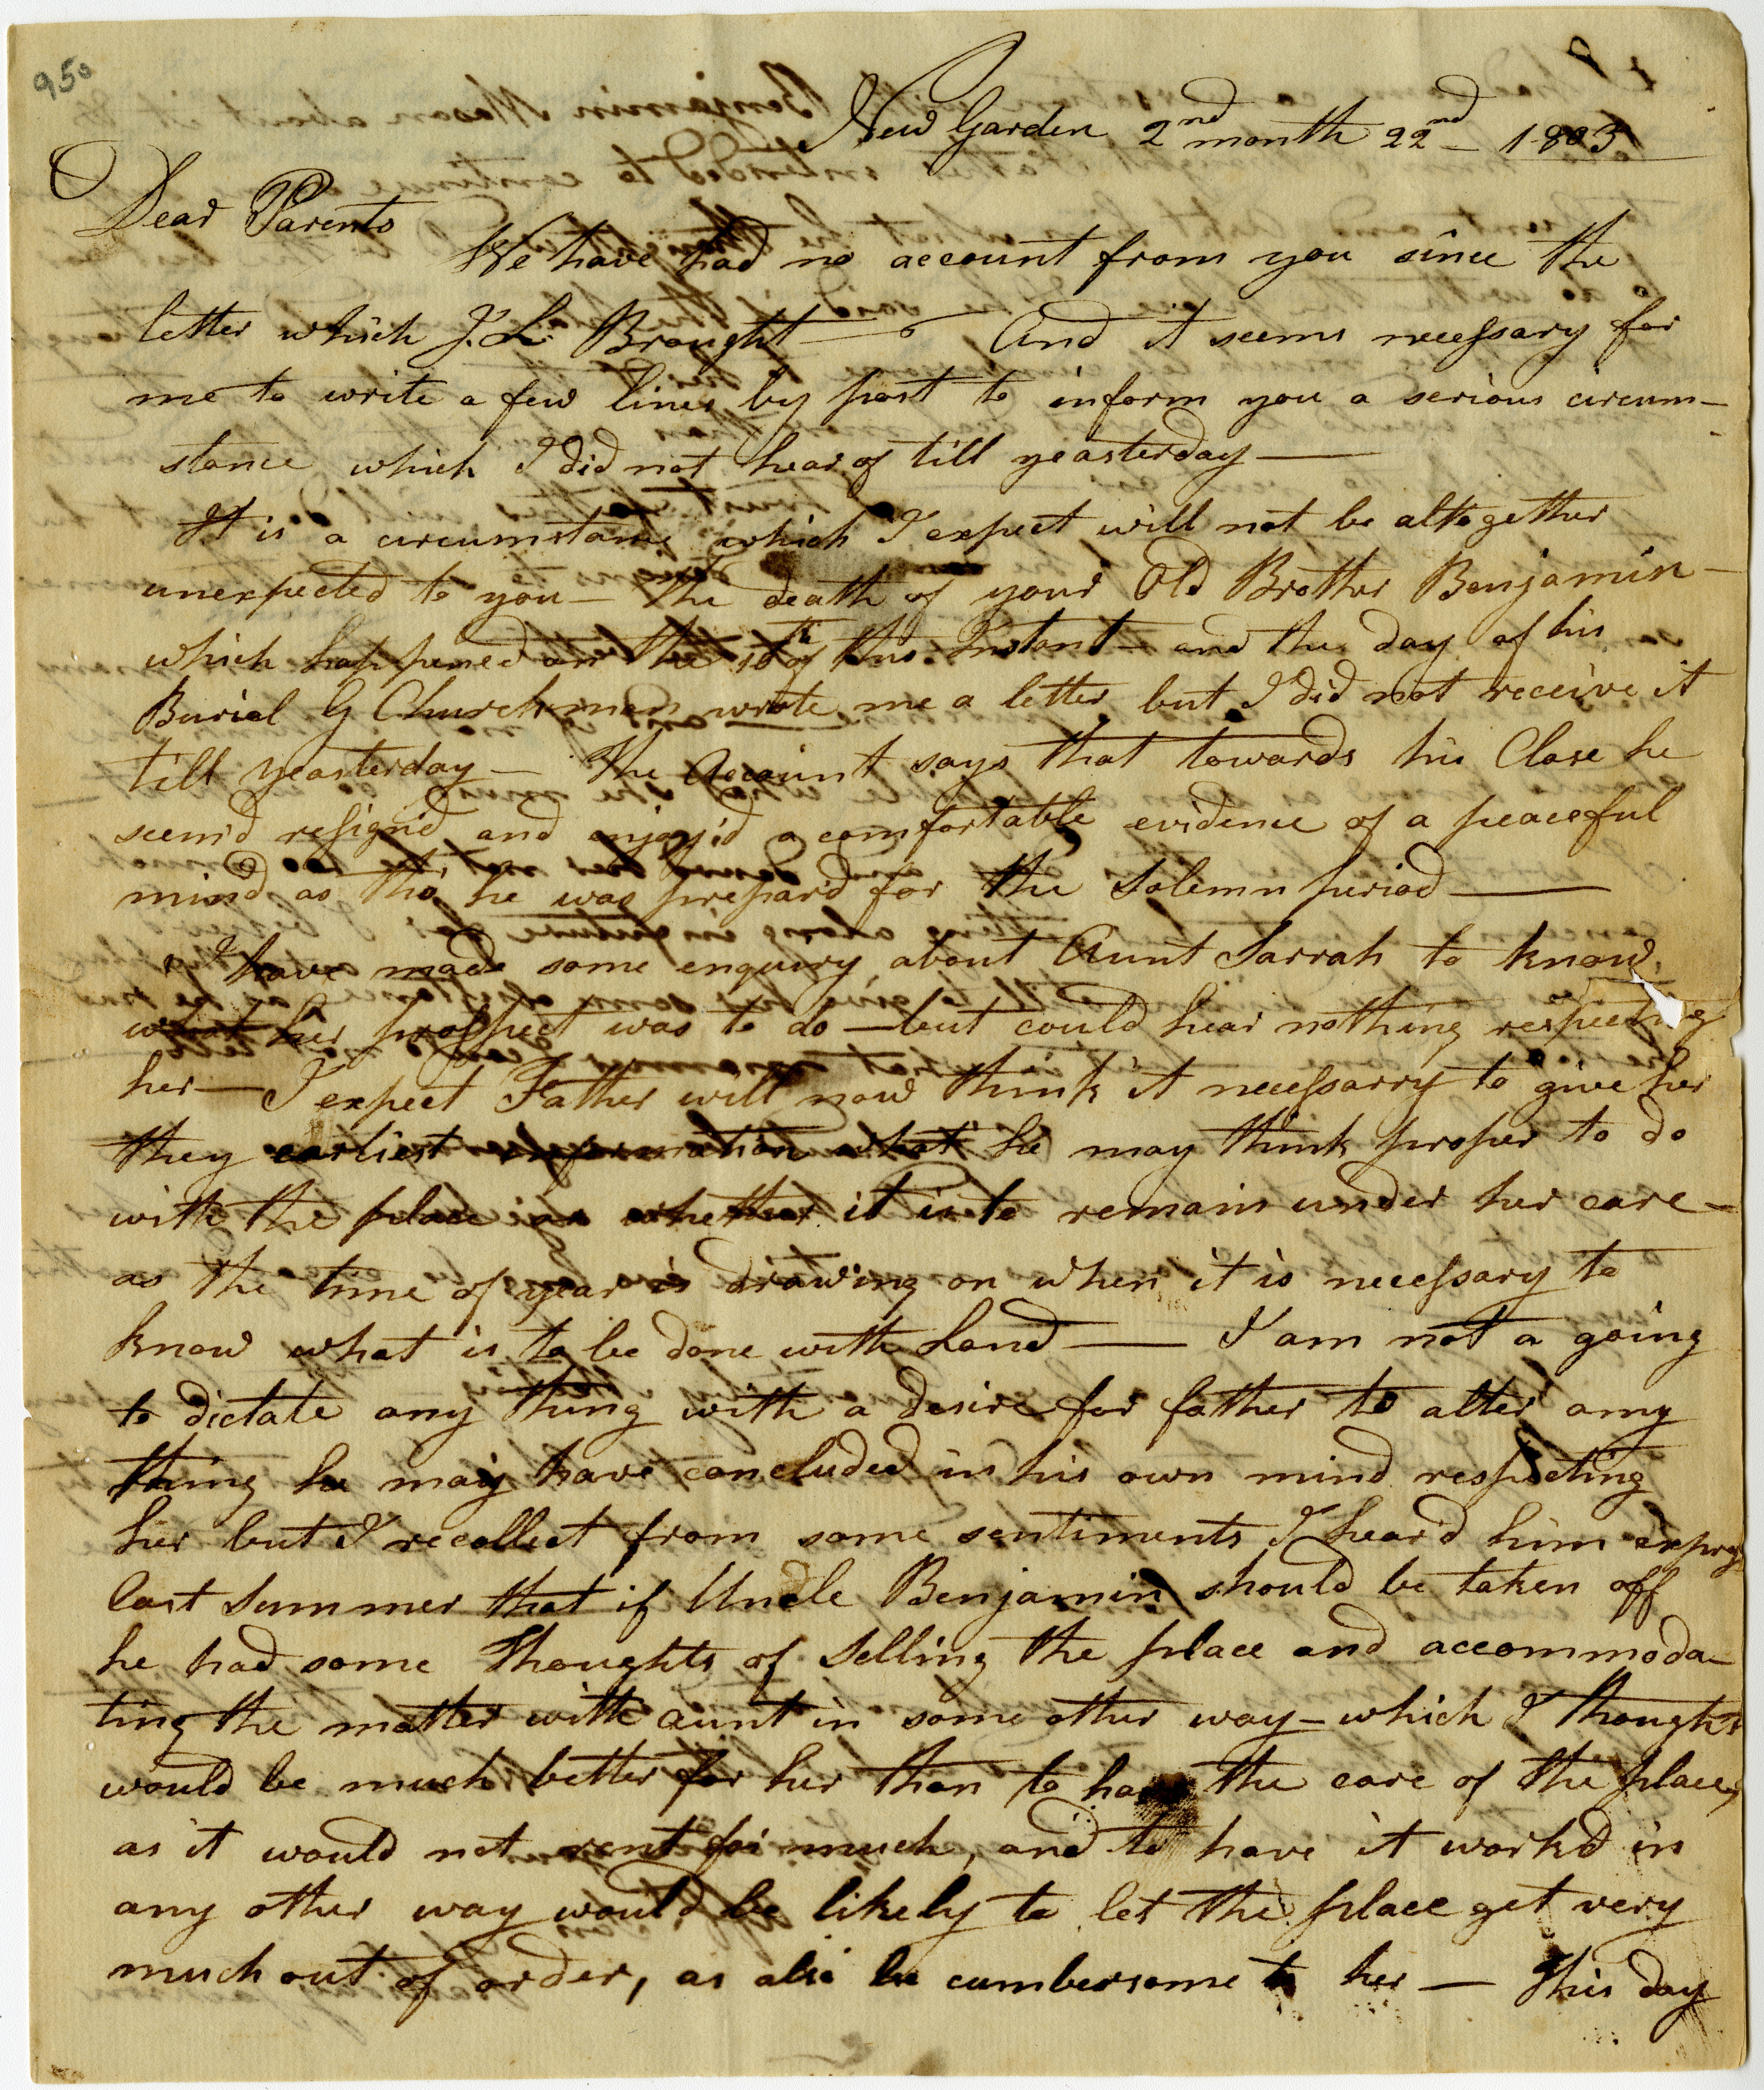 950
New Garden 2nd month 22nd – 1803
Dear Parents
We have had no account from you since the
letter which J. L. Brought — And it seems necessary for
me to write a few lines by post to inform you a serious circum–
stance which I did not hear of till yeasterday —
It is a circumstance which I expect will not be altogether
unexpected to you – the death of your Old Brother Benjamin –
which happened on the 10th of this Instant – and the day of his
Burial G Churchman wrote me a letter but I did not receive it
till yeasterday – The Account says that towards his Close he
seem'd resign'd and enjoy'd a comfortable evidence of a peaceful
mind as tho' he was prepard for the solemn period —
I have made some enquiry about Aunt Sarrah to know
what her prospect was to do – but could hear nothing respecting
her – I expect Father will now think it necessarry to give her
they earliest information what he may think proper to do
with the place or whether it is to remain under her care –
as the time of year is drawing on when it is necessary to
know what is to be done with Land — I am not a going
to dictate any thing with a desire for father to alter any
thing he may have concluded in his own mind respecting
her but I recollect from some sentiments I heard him express
last summer that if Uncle Benjamin should be taken off
he had some thoughts of selling the place and accommoda–
ting the matter with aunt in some other way – which I thought
would be much better for her than to have the care of the place,
as it would not rent for much, and to have it workd in
any other way would be likely to let the place get very
much out of order, as also be cumbersome to her — This day